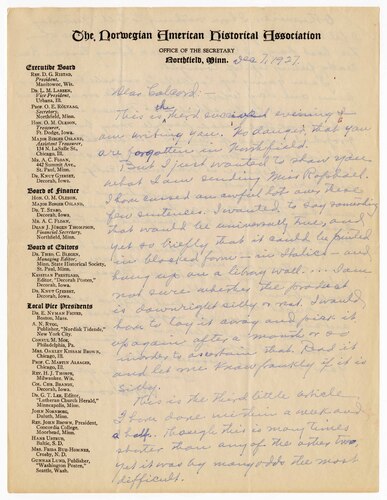 The Norwegian American Historical Association
OFFICE OF THE SECRETARY
Northfield, Minn. Dec 7, 1927.
Executive Board
REV. D. G. RISTAD,
President,
Manitowoc, Wis.
DR. L. M. LARSEN,
Vice President,
Urbana, Ill.
PROF. O. E. RÖLVAAG,
Secretary,
Northfield, Minn.
HON. O. M. OLESON,
Treasurer,
Ft. Dodge, Iowa.
MAJOR BIRGER OSLAND,
Assistant Treasurer,
134 N. LaSalle St.
Chicago, Ill.
MR. A. C. FLOAN,
442 Summit Ave.,
St. Paul, Minn.
DR. KNUT GJERSET,
Decorah, Iowa.
Board of Finance
HON. O. M. OLESON,
MAJOR BIRGER OSLAND,
DR. T. STABO,
Decorah, Iowa.
MR. A. C. FLOAN,
DEAN J. JÖRGEN THOMPSON,
Financial Secretary,
Northfield, Minn.
Board of Editors
DR. THEO. C. BLEGEN,
Managing Editor,
Minn. State Historical Society,
St. Paul, Minn.
KRISTIAN PRESTGARD,
Editor, "Decorah Posten,"
Decorah, Iowa.
DR. KNUT GJERSET,
Decorah, Iowa.
Local Vice Presidents
DR. E. NYMAN FIGVED,
Boston, Mass.
A. N. RYGG,
Publisher, "Nordisk Tidende,"
New York City.
CONSUL M. MOE,
Philadelphia, Pa.
MRS. OAKLEY KISSAM BROWN,
Chicago, Ill.
PROF. C. MARTIN ALSAGER,
Chicago, Ill.
REV. H. J. THORPE,
Milwaukee, Wis.
COL. CHR. BRANDT,
Decorah, Iowa.
DR. G. T. LEE, Editor,
"Lutheran Church Herald,"
Minneapolis, Minn.
JOHN NORNBORG,
Duluth, Minn.
REV. JOHN BROWN, President,
Concordia College,
Moorhead, Minn.
HANS USTRUD,
Baltic, S. D.
MRS. FRIDA BUE-HOMNES,
Crosby, N. D.
GUNNAR LUND, Publisher,
"Washington Posten,"
Seattle, Wash.
Dear Colcord:-
This is the third evening I
am writing you. No danger that you
are forgotten in Northfield.
But I just wanted to show you
what I am sending Miss Raphael.
I have cussed an awful lot over these
few sentences. I wanted to say something
that would be universally true, and
yet so briefly that it could be printed
in blocked form - in Italics - and
hung up on a library wall. ... I am
not sure whether the product
is downright silly or not. I would
have to lay it away and pick it
up again after a month or so
in order to ascertain that. Read it
and let me know frankly if it is
silly.
This is the third little article
I have done within a week and
a half. Though this is many times
shorter than any of the other two,
yet it was by many odds the most
difficult.